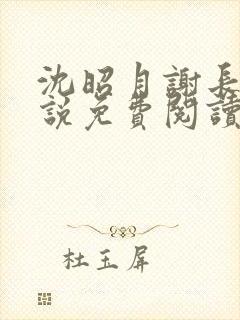 沈昭月謝長
說免費閱讀
杜玉屏